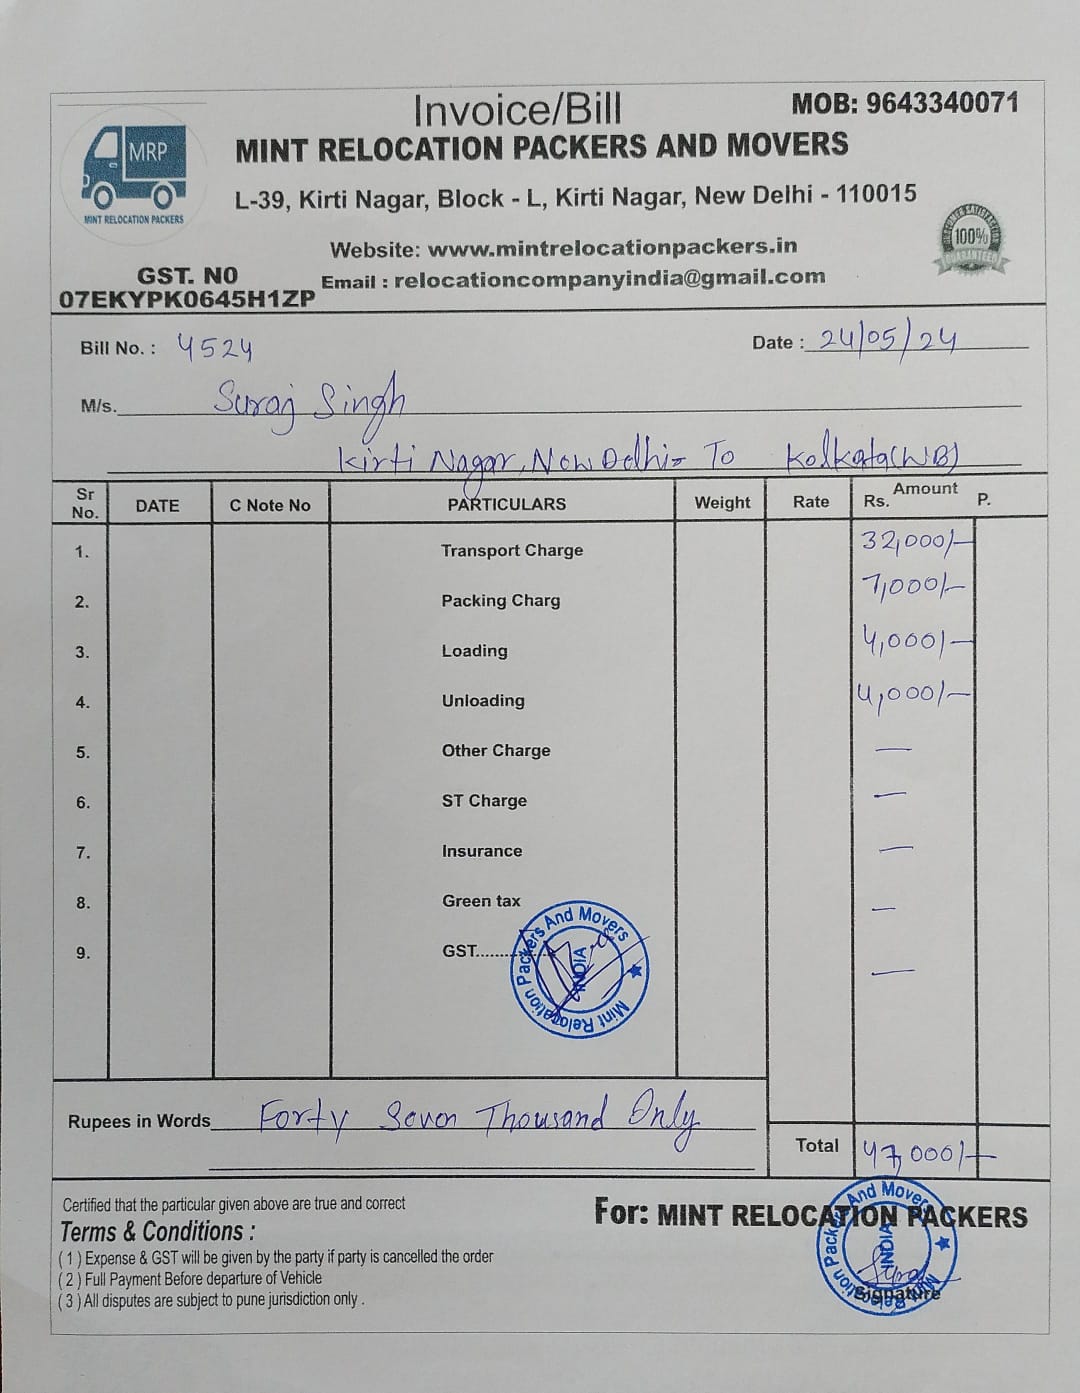 Invoice/Bill
MOB: 9643340071
MRP
MINT RELOCATION PACKERS
MINT RELOCATION PACKERS AND MOVERS
L-39, Kirti Nagar, Block - L, Kirti Nagar, New Delhi - 110015
CUSTOMER SATISFACTION
100%
GUARANTEED
Website: www.mintrelocationpackers.in
GST. NO
Email : relocationcompanyindia@gmail.com
07EKYPK0645H1ZP
Bill No. : 4524
Date : 24/05/24
M/s. Suraj Singh
Kirti Nagar, New Delhi- To Kolkata(WB)
Sr No. DATE C Note No PARTICULARS Weight Rate Amount Rs. P.
1. Transport Charge 32,000/-
2. Packing Charg 7,000/-
3. Loading 4,000/-
4. Unloading 4,000/-
5. Other Charge —
6. ST Charge —
7. Insurance —
8. Green tax —
9. GST........... —
Mint Relocation Packers And Movers
INDIA
Rupees in Words Forty Seven Thousand Only
Total 47,000/-
Certified that the particular given above are true and correct
For: MINT RELOCATION PACKERS
Terms & Conditions :
( 1 ) Expense & GST will be given by the party if party is cancelled the order
( 2 ) Full Payment Before departure of Vehicle
( 3 ) All disputes are subject to pune jurisdiction only .
Mint Relocation Packers And Movers
INDIA
Signature